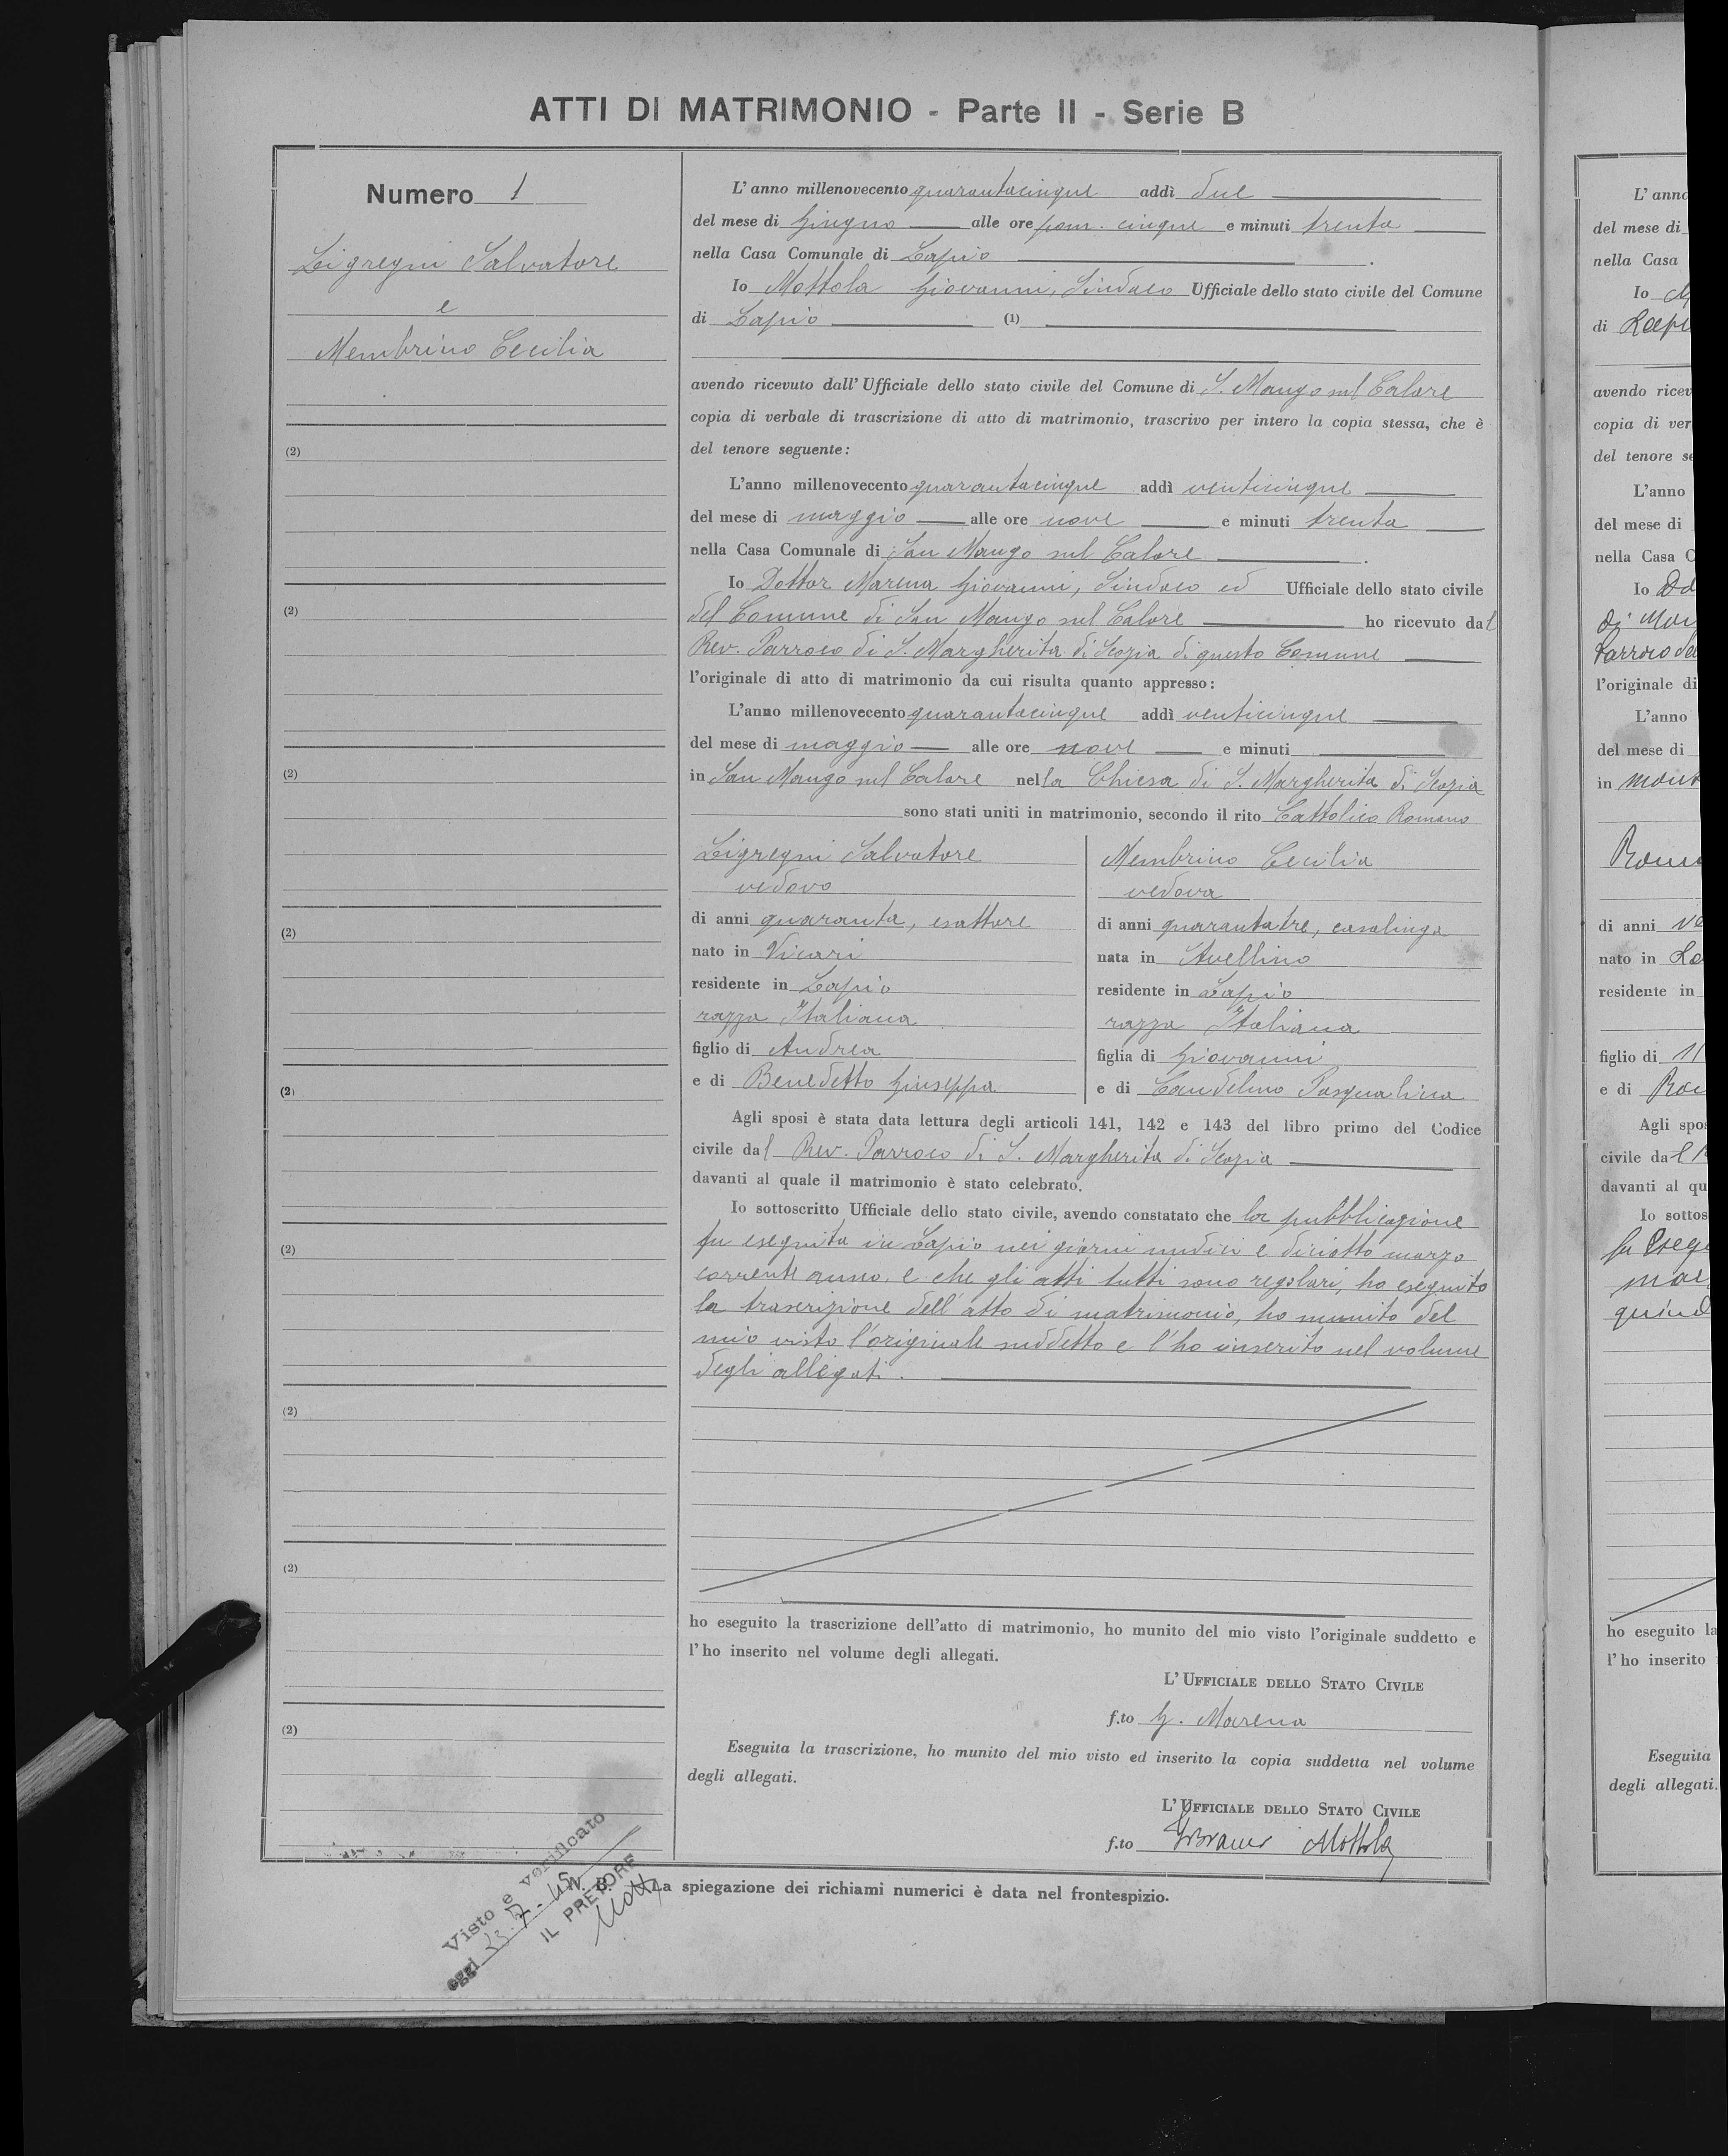 ATTI DI MATRIMONIO - Parte II - Serie B
Numero 1
Ligregni Salvatore
e
Membrino Cecilia
(2)
(2)
(2)
(2)
(2)
(2)
(2)
(2)
(2)
L'anno millenovecento quarantacinque addì due
del mese di Giugno alle ore pom. cinque e minuti trenta
nella Casa Comunale di Lapio.
Io Mottola Giovanni, Sindaco Ufficiale dello stato civile del Comune
di Lapio (1)
avendo ricevuto dall'Ufficiale dello stato civile del Comune di S. Mango sul Calore
copia di verbale di trascrizione di atto di matrimonio, trascrivo per intero la copia stessa, che è
del tenore seguente:
L'anno millenovecento quarantacinque addì venticinque
del mese di maggio alle ore nove e minuti trenta
nella Casa Comunale di San Mango sul Calore.
Io Dottor Marena Giovanni, Sindaco ed Ufficiale dello stato civile
del Comune di San Mango sul Calore ho ricevuto dal
Rev. Parroco di S. Margherita di Scozia di questo Comune
l'originale di atto di matrimonio da cui risulta quanto appresso:
L'anno millenovecento quarantacinque addì venticinque
del mese di maggio alle ore nove e minuti
in San Mango sul Calore nella Chiesa di S. Margherita di Scozia
sono stati uniti in matrimonio, secondo il rito Cattolico Romano
Ligregni Salvatore
vedovo
di anni quaranta, esattore
nato in Vicari
residente in Lapio
razza Italiana
figlio di Andrea
e di Benedetto Giuseppa
Membrino Cecilia
vedova
di anni quarantatre, casalinga
nata in Avellino
residente in Lapio
razza Italiana
figlia di Giovanni
e di Candelmo Pasqualina
Agli sposi è stata data lettura degli articoli 141, 142 e 143 del libro primo del Codice
civile dal Rev. Parroco di S. Margherita di Scozia
davanti al quale il matrimonio è stato celebrato.
Io sottoscritto Ufficiale dello stato civile, avendo constatato che la pubblicazione
fu eseguita in Lapio nei giorni undici e diciotto marzo
corrente anno, e che gli atti tutti sono regolari, ho eseguito
la trascrizione dell'atto di matrimonio, ho munito del
mio visto l'originale suddetto e l'ho inserito nel volume
degli allegati.
ho eseguito la trascrizione dell'atto di matrimonio, ho munito del mio visto l'originale suddetto e
l'ho inserito nel volume degli allegati.
L'UFFICIALE DELLO STATO CIVILE
f.to G. Marena
Eseguita la trascrizione, ho munito del mio visto ed inserito la copia suddetta nel volume
degli allegati.
L'UFFICIALE DELLO STATO CIVILE
f.to Giovanni Mottola
N. B. La spiegazione dei richiami numerici è data nel frontespizio.
Visto e verificato
oggi 23-7-45
IL PRETORE
L'anno
del mese di
nella Casa
Io
di Lapi
avendo ricev
copia di ver
del tenore se
L'anno
del mese di
nella Casa C
Io
di
Parroco
l'originale di
L'anno
del mese di
in
Rom
di anni
nato in
residente in
figlio di
e di
Agli spos
civile dal
davanti al qu
Io sottos
fu esegu
quind
ho eseguito la
l'ho inserito
Eseguita
degli allegati.